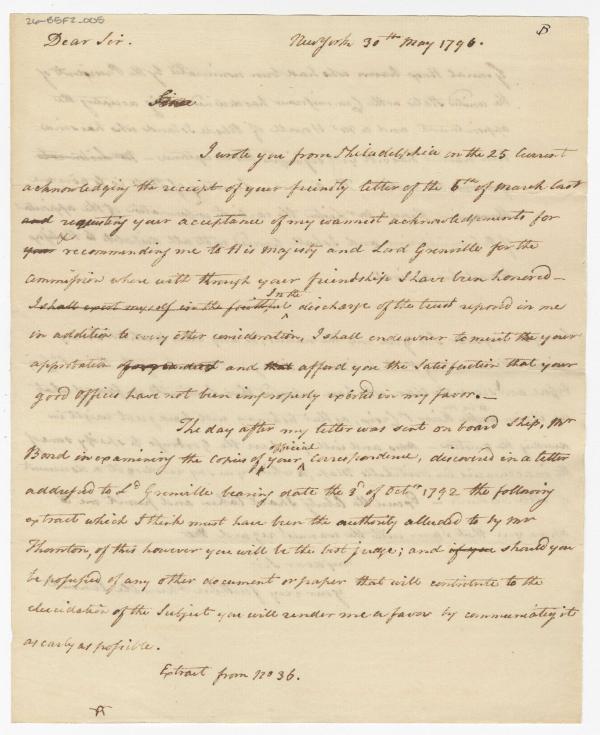 26-85F2_005
B
Dear Sir.
New York 30th May 1796.
Since
I wrote you from Philadelphia on the 25 Current
acknowledging the receipt of your friendly letter of the 6th of March last
and requesting your acceptance of my warmest acknowledgements for
your recommending me to His Majesty and Lord Grenville for the
Commission where with through your friendship I have been honored—
In the
I shall exert myself in the faithful discharge of the trust reposed in me
in addition to every other consideration, I shall endeavour to merit the your
approbation and that afford you the Satisfaction that your
good offices have not been improperly exerted in my favor.—
The day after my letter was sent on board Ship, Mr
official
Bond in examining the Copies of your Correspondence, discovered in a letter
addressed to Ld Grenville bearing date the 3d of Octr 1792 the following
extract which I think must have been the authority alluded to by Mr
Thornton, of this however you will be the best judge; and if you should you
be possessed of any other document or paper that will contribute to the
elucidation of the Subject you will render me a favor by communicatg it
as early as possible.
Extract from No 36.